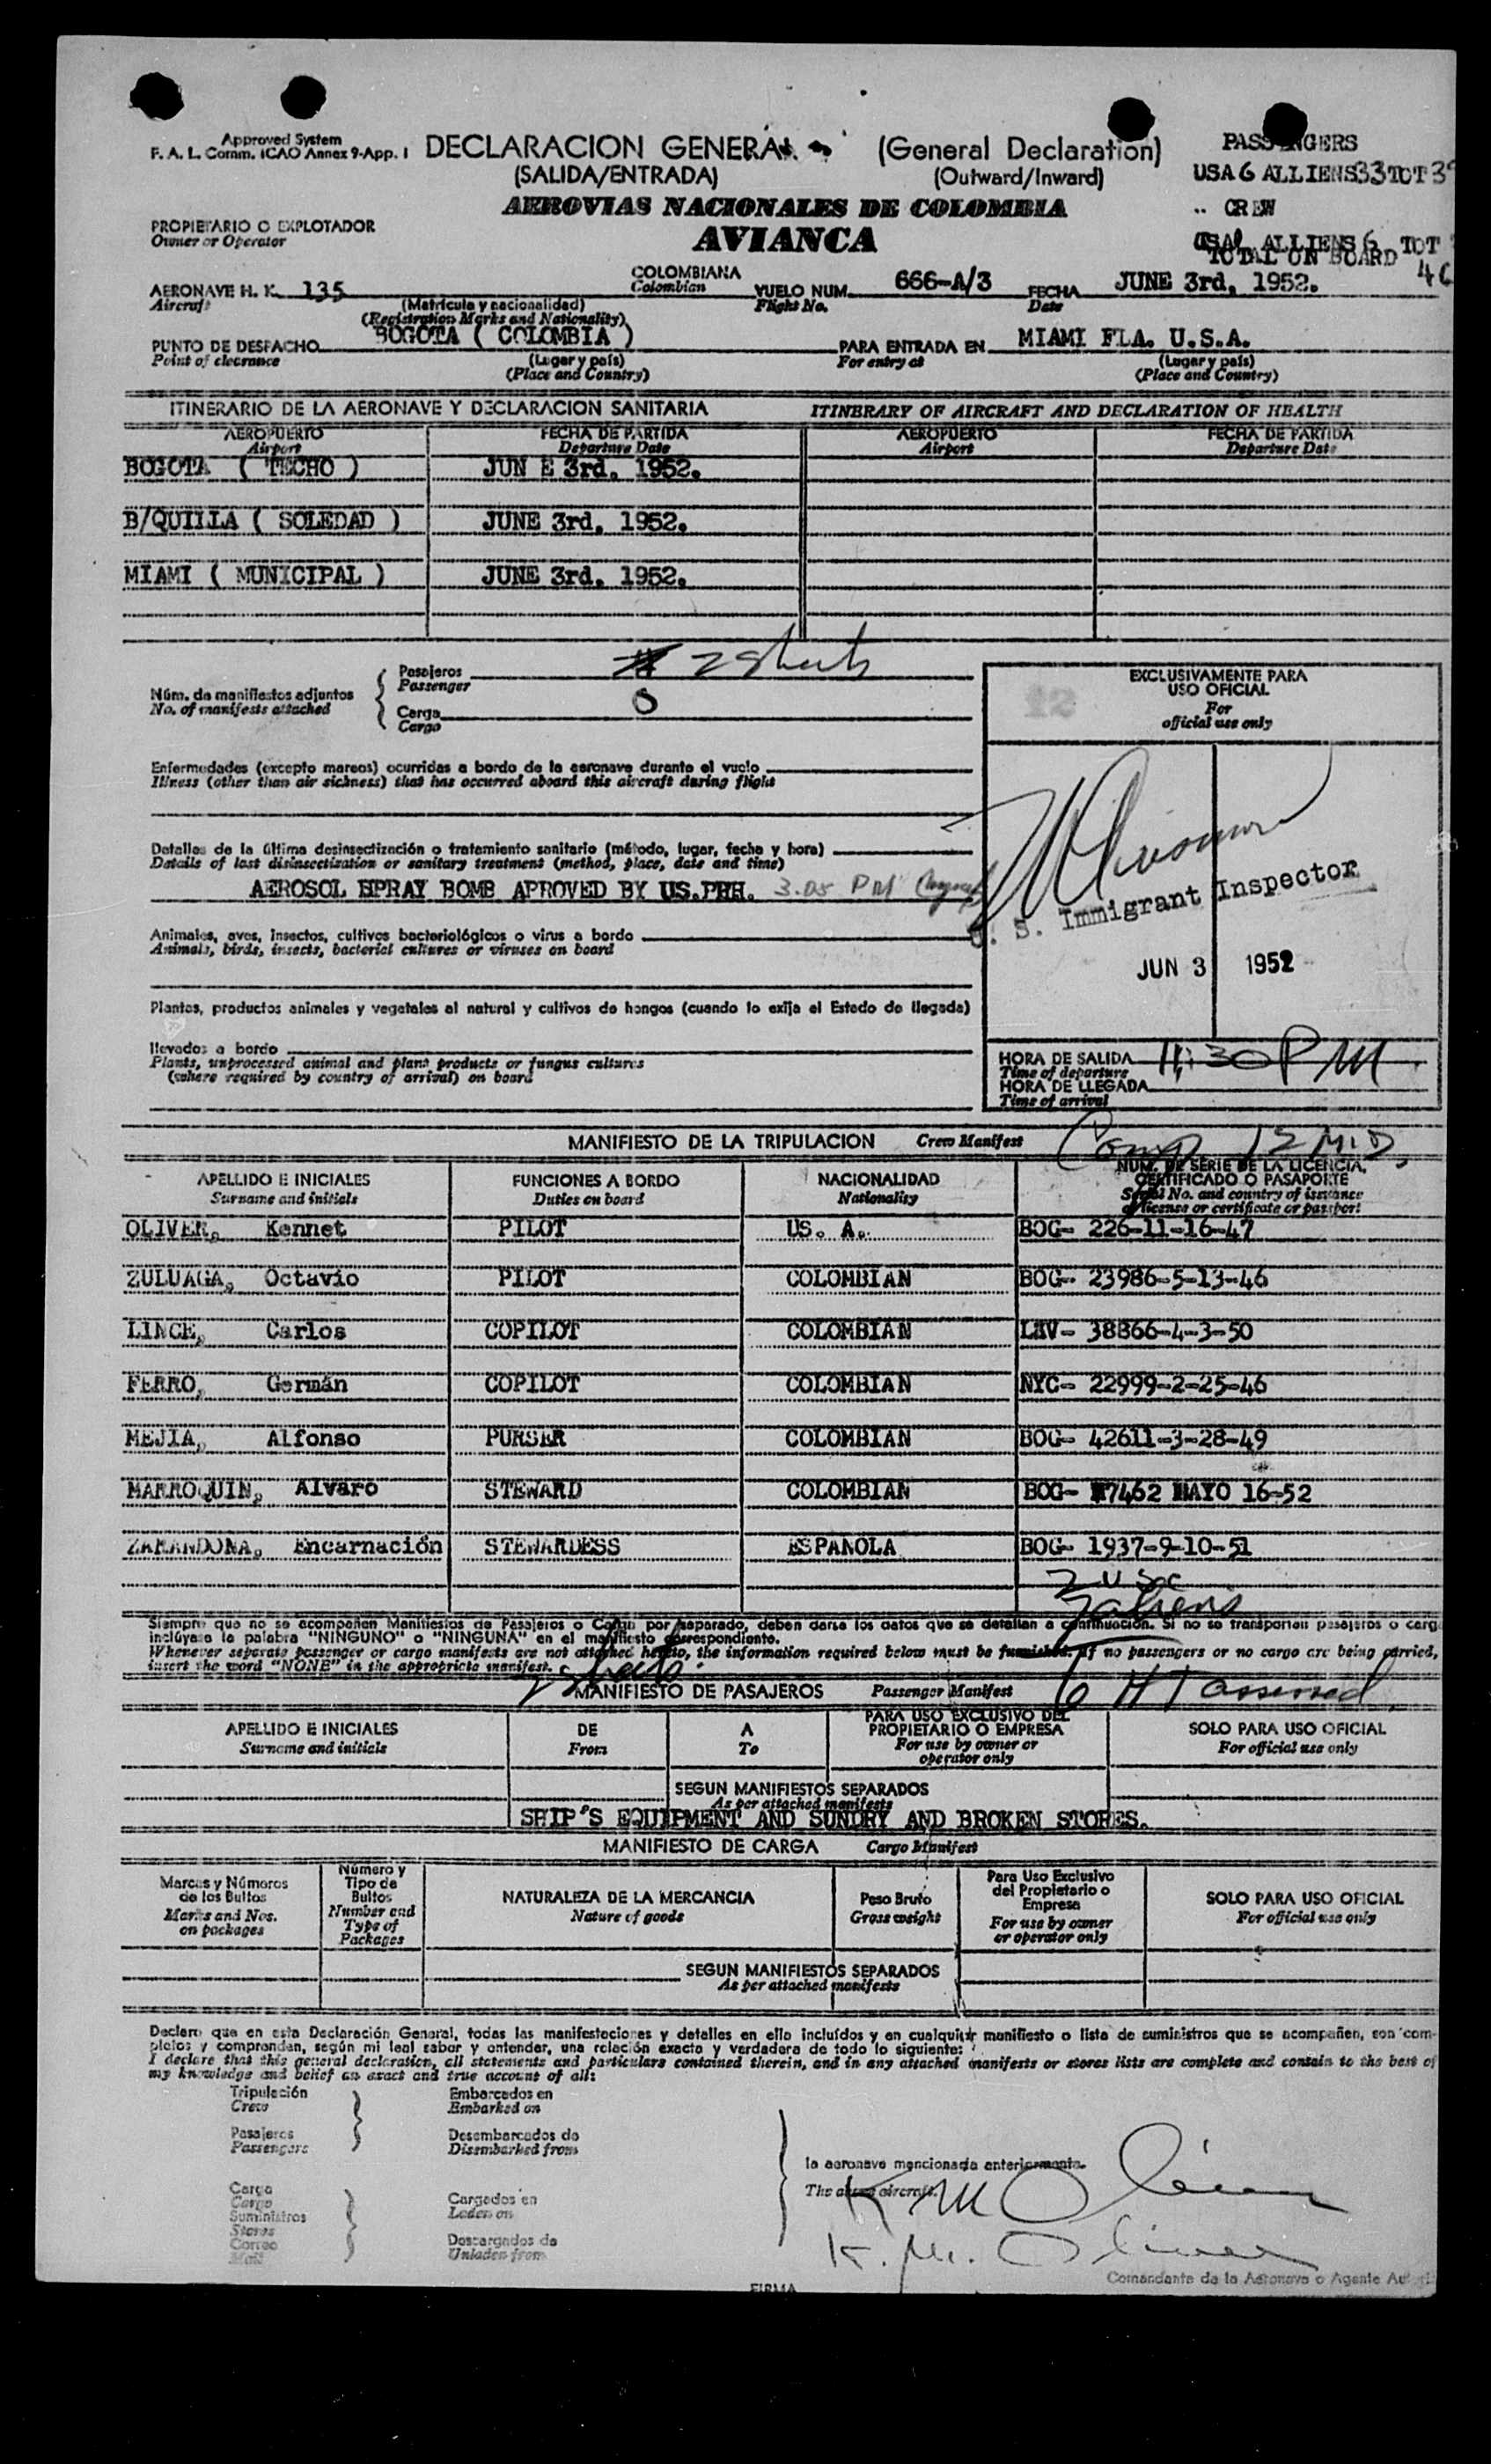 Approved System
F. A. L. Comm. ICAO Annex 9-App. 1
DECLARACION GENERAL (General Declaration)
(SALIDA/ENTRADA) (Outward/Inward)
PASSENGERS
USA 6 ALLIENS 33 TOT 39
CREW
ALLIENS 6 TOT
TOTAL ON BOARD
AEROVIAS NACIONALES DE COLOMBIA
AVIANCA
PROPIETARIO O EXPLOTADOR
Owner or Operator
AERONAVE H. K. 135 COLOMBIANA VUELO NUM. 666-A/3 FECHA JUNE 3rd, 1952.
Aircraft Colombian Flight No. Date
(Matrícula y nacionalidad)
(Registration Marks and Nationality)
PUNTO DE DESPACHO BOGOTA ( COLOMBIA ) PARA ENTRADA EN MIAMI FLA. U.S.A.
Point of clearance (Lugar y país) For entry at (Lugar y país)
(Place and Country) (Place and Country)
ITINERARIO DE LA AERONAVE Y DECLARACION SANITARIA ITINERARY OF AIRCRAFT AND DECLARATION OF HEALTH
AEROPUERTO FECHA DE PARTIDA AEROPUERTO FECHA DE PARTIDA
Airport Departure Date Airport Departure Date
BOGOTA ( TECHO ) JUN E 3rd, 1952.
B/QUILLA ( SOLEDAD ) JUNE 3rd, 1952.
MIAMI ( MUNICIPAL ) JUNE 3rd, 1952.
Núm. de manifiestos adjuntos
No. of manifests attached
Pasajeros 2 sheets
Passenger
Carga
Cargo
EXCLUSIVAMENTE PARA
USO OFICIAL
For
official use only
Enfermedades (excepto mareos) ocurridas a bordo de la aeronave durante el vuelo
Illness (other than air sickness) that has occurred aboard this aircraft during flight
Detalles de la última desinsectización o tratamiento sanitario (método, lugar, fecha y hora)
Details of last disinsectization or sanitary treatment (method, place, date and time)
AEROSOL SPRAY BOMB APROVED BY US.PHH. 3.05 PM
Animales, aves, insectos, cultivos bacteriológicos o virus a bordo
Animals, birds, insects, bacterial cultures or viruses on board
U. S. Immigrant Inspector
JUN 3 1952
Plantas, productos animales y vegetales al natural y cultivos de hongos (cuando lo exija el Estado de llegada)
llevados a bordo
Plants, unprocessed animal and plant products or fungus cultures
(where required by country of arrival) on board
HORA DE SALIDA 11:30 PM
Time of departure
HORA DE LLEGADA
Time of arrival
MANIFIESTO DE LA TRIPULACION Crew Manifest
APELLIDO E INICIALES FUNCIONES A BORDO NACIONALIDAD NUM. DE SERIE DE LA LICENCIA,
CERTIFICADO O PASAPORTE
Surname and initials Duties on board Nationality Serial No. and country of issuance
of license or certificate or passport
OLIVER, Kennet PILOT US. A. BOG- 226-11-16-47
ZULUAGA, Octavio PILOT COLOMBIAN BOG- 23986-5-13-46
LINCE, Carlos COPILOT COLOMBIAN LAV- 38866-4-3-50
FERRO, Germán COPILOT COLOMBIAN NYC- 22999-2-25-46
MEJIA, Alfonso PURSER COLOMBIAN BOG- 42611-3-28-49
MARROQUIN, Alvaro STEWARD COLOMBIAN BOG- 7462 MAYO 16-52
ZARANDONA, Encarnación STEWARDESS ESPANOLA BOG- 1937-9-10-51
2 USC
7 aliens
Siempre que no se acompañen Manifiestos de Pasajeros o Carga por separado, deben darse los datos que se detallan a continuación. Si no se transportan pasajeros o carga
inclúyase la palabra "NINGUNO" o "NINGUNA" en el manifiesto correspondiente.
Whenever separate passenger or cargo manifests are not attached hereto, the information required below must be furnished. If no passengers or no cargo are being carried,
insert the word "NONE" in the appropriate manifest.
2 sheets
MANIFIESTO DE PASAJEROS Passenger Manifest 6 HT assessed
APELLIDO E INICIALES DE A PARA USO EXCLUSIVO DEL
PROPIETARIO O EMPRESA SOLO PARA USO OFICIAL
Surname and initials From To For use by owner or
operator only For official use only
SEGUN MANIFIESTOS SEPARADOS
As per attached manifests
SHIP'S EQUIPMENT AND SUNDRY AND BROKEN STORES.
MANIFIESTO DE CARGA Cargo Manifest
Marcas y Números
de los Bultos
Marks and Nos.
on packages
Número y
Tipo de
Bultos
Number and
Type of
Packages
NATURALEZA DE LA MERCANCIA
Nature of goods
Peso Bruto
Gross weight
Para Uso Exclusivo
del Propietario o
Empresa
For use by owner
or operator only
SOLO PARA USO OFICIAL
For official use only
SEGUN MANIFIESTOS SEPARADOS
As per attached manifests
Declaro que en esta Declaración General, todas las manifestaciones y detalles en ella incluídos y en cualquier manifiesto o lista de suministros que se acompañen, son com-
pletos y comprenden, según mi leal saber y entender, una relación exacta y verdadera de todo lo siguiente:
I declare that this general declaration, all statements and particulars contained therein, and in any attached manifests or stores lists are complete and contain to the best of
my knowledge and belief an exact and true account of all:
Tripulación
Crew
Pasajeros
Passengers
Embarcados en
Embarked on
Desembarcados de
Disembarked from
Carga
Cargo
Suministros
Stores
Correo
Mail
Cargados en
Laden on
Descargados de
Unladen from
la aeronave mencionada anteriormente.
The above aircraft.
K M Oliver
K. M. Oliver
Comandante de la Aeronave o Agente
FIRMA